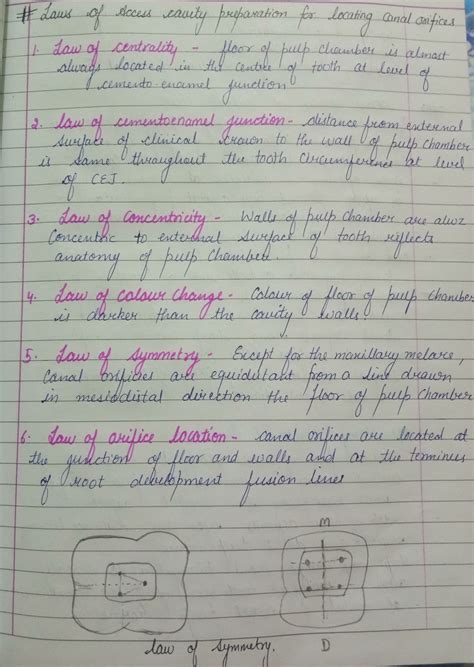 # Laws of Access cavity preparation for locating canal orifices
1. Law of centrality - floor of pulp chamber is almost
always located in the centre of tooth at level of
cemento enamel junction
2. Law of cementoenamel junction - distance from external
surface of clinical crown to the wall of pulp chamber
is same throughout the tooth circumference at level
of CEJ.
3. Law of Concentricity - Walls of pulp chamber are alwz
Concentric to external surface of tooth reflects
anatomy of pulp chamber.
4. Law of colour change - Colour of floor of pulp chamber
is darker than the cavity walls
5. Law of symmetry - Except for the maxillary molars,
Canal orifices are equidistant from a line drawn
in mesiodistal direction the floor of pulp chamber
6. Law of orifice location - canal orifices are located at
the junction of floor and walls and at the terminus
of root development fusion lines
M
D
Law of Symmetry.